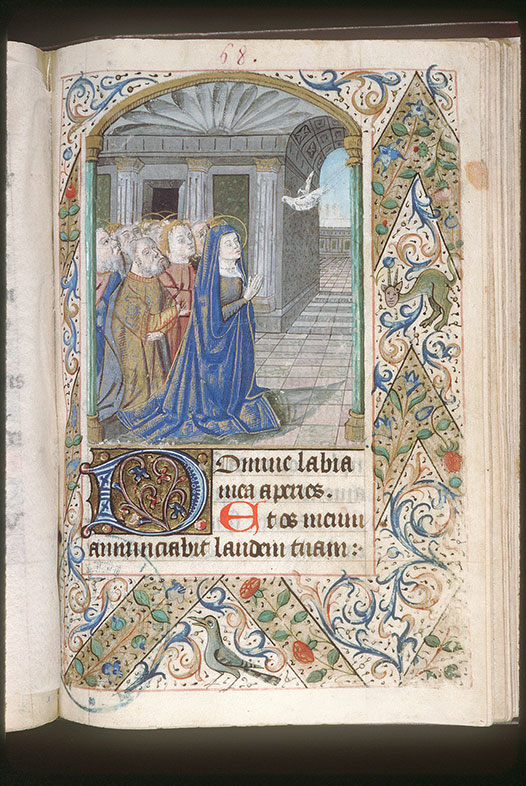 68.
Domine labia
mea aperies.
Et os meum
annunciabit laudem tuam :